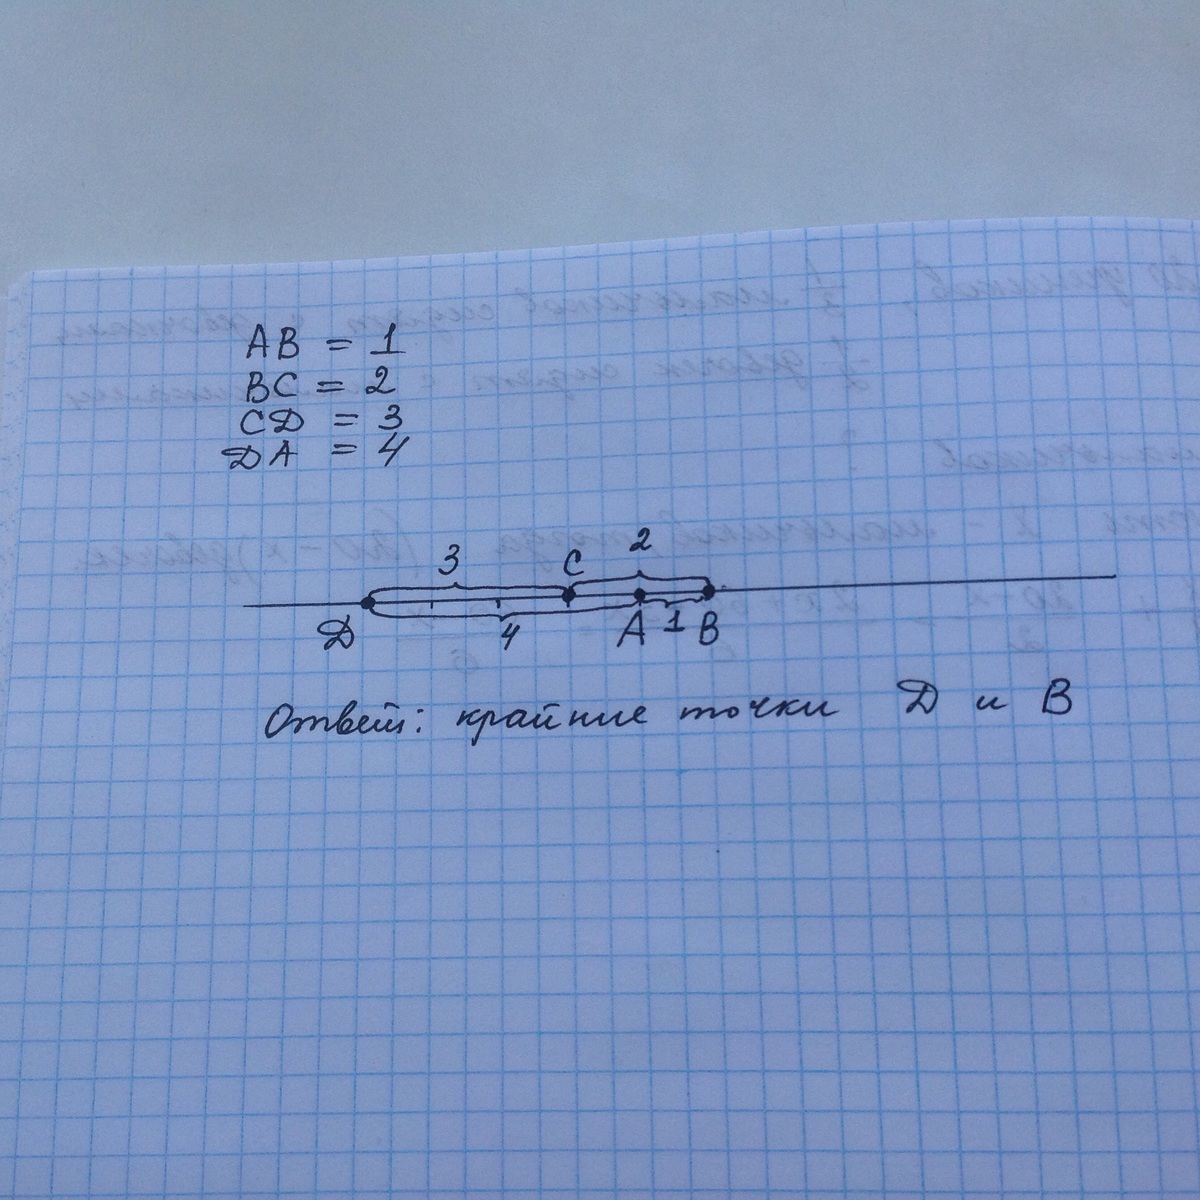 AB = 1
BC = 2
CD = 3
DA = 4
3 C 2
D 4 A 1 B
Ответ: крайние точки D и B